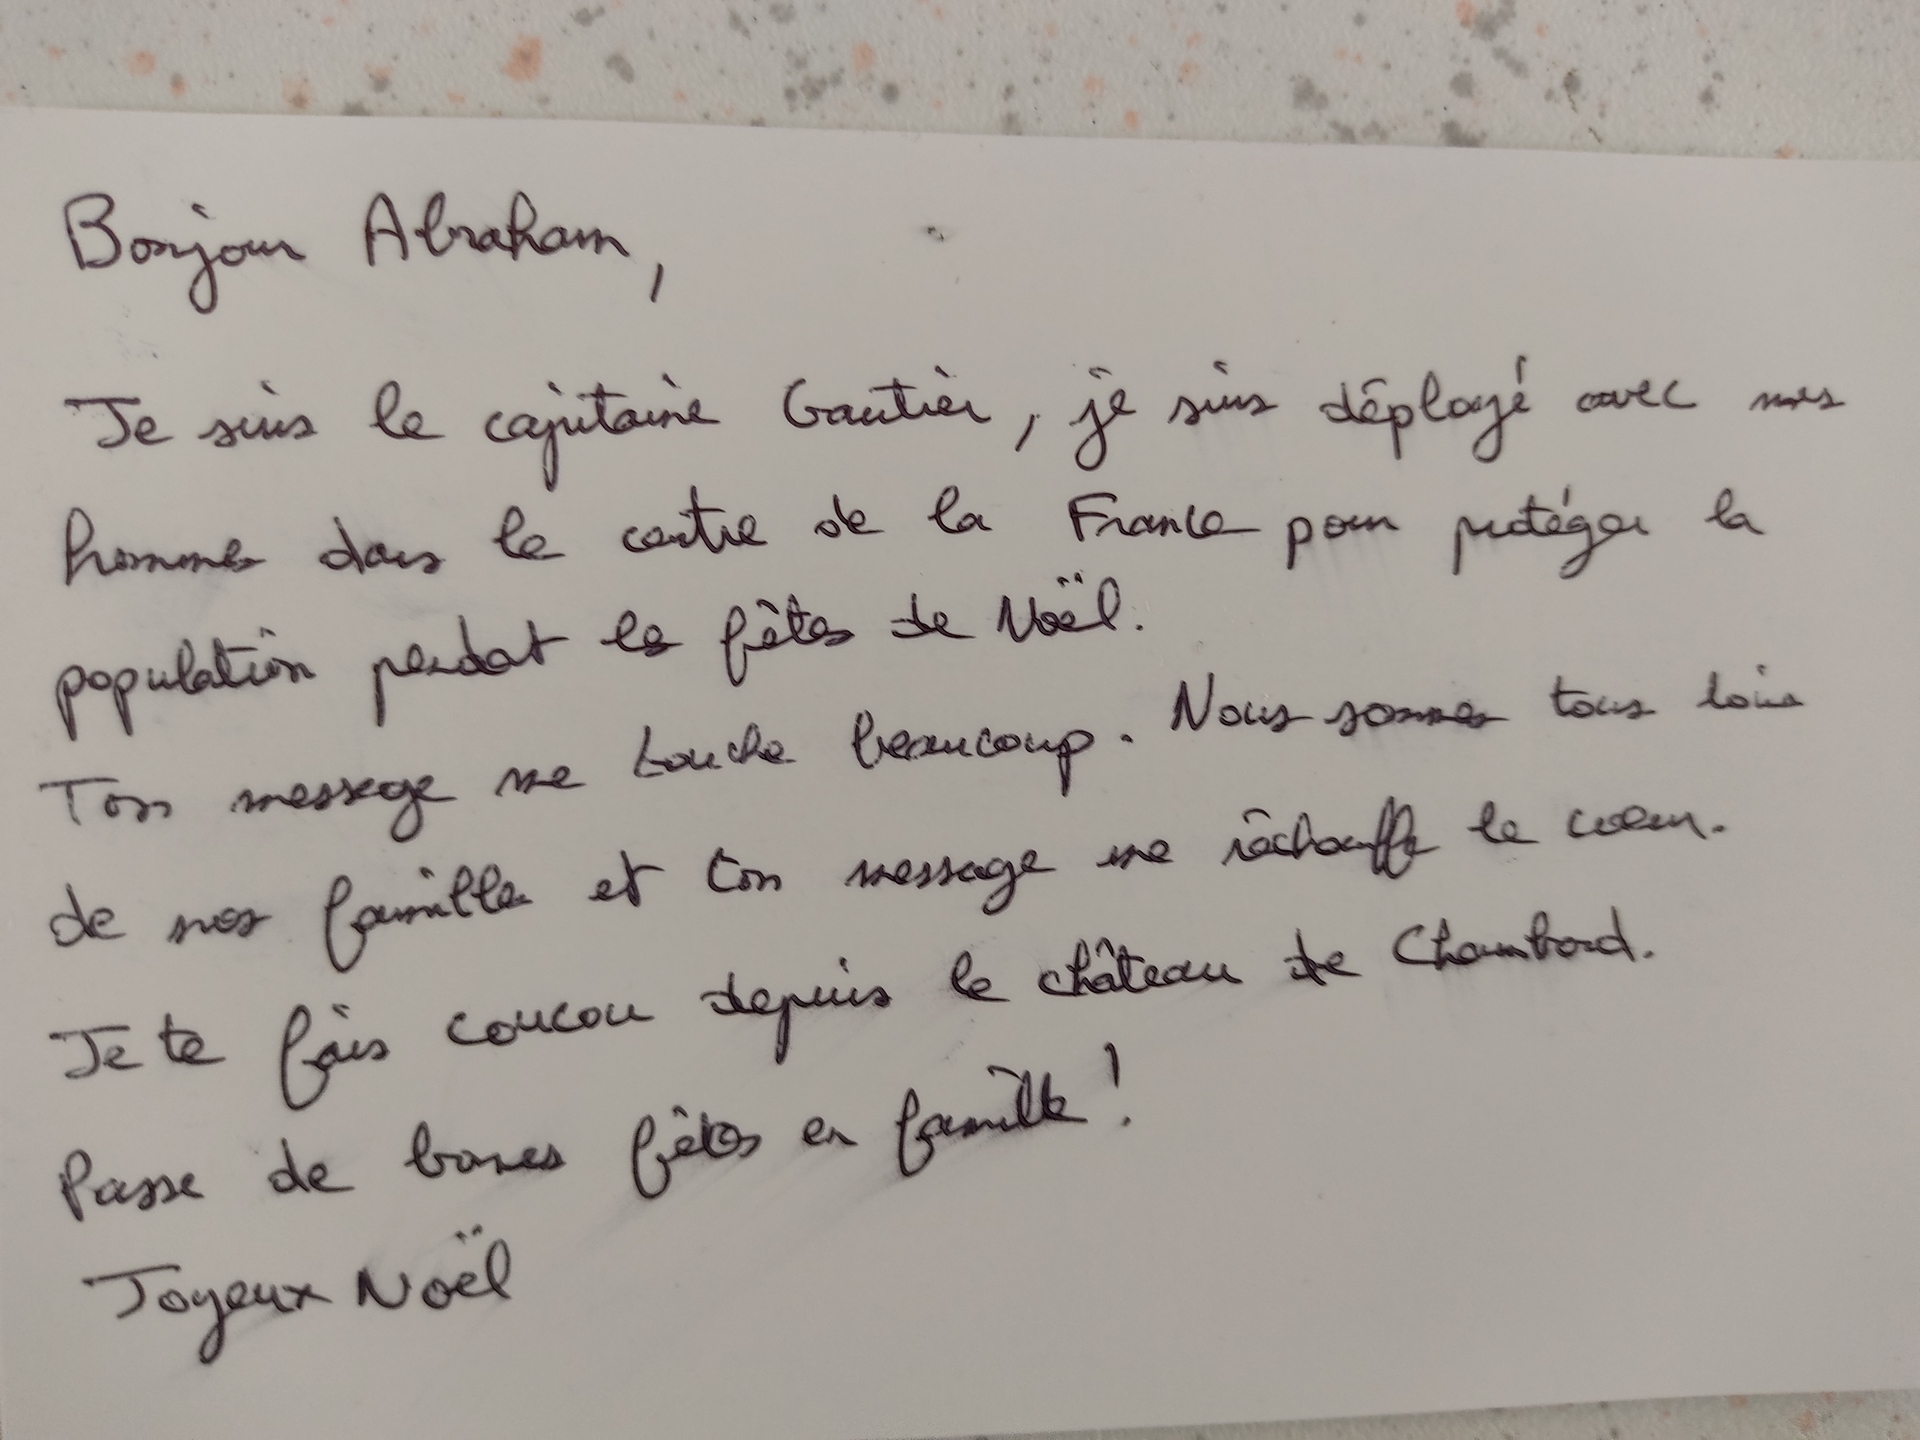 Bonjour Abraham,
Je suis le capitaine Gautier, je suis déployé avec mes
hommes dans le centre de la France pour protéger la
population pendant les fêtes de Noël.
Ton message me touche beaucoup. Nous sommes tous loin
de nos familles et ton message me réchauffe le coeur.
Je te fais coucou depuis le château de Chambord.
Passe de bonnes fêtes en famille !
Joyeux Noël